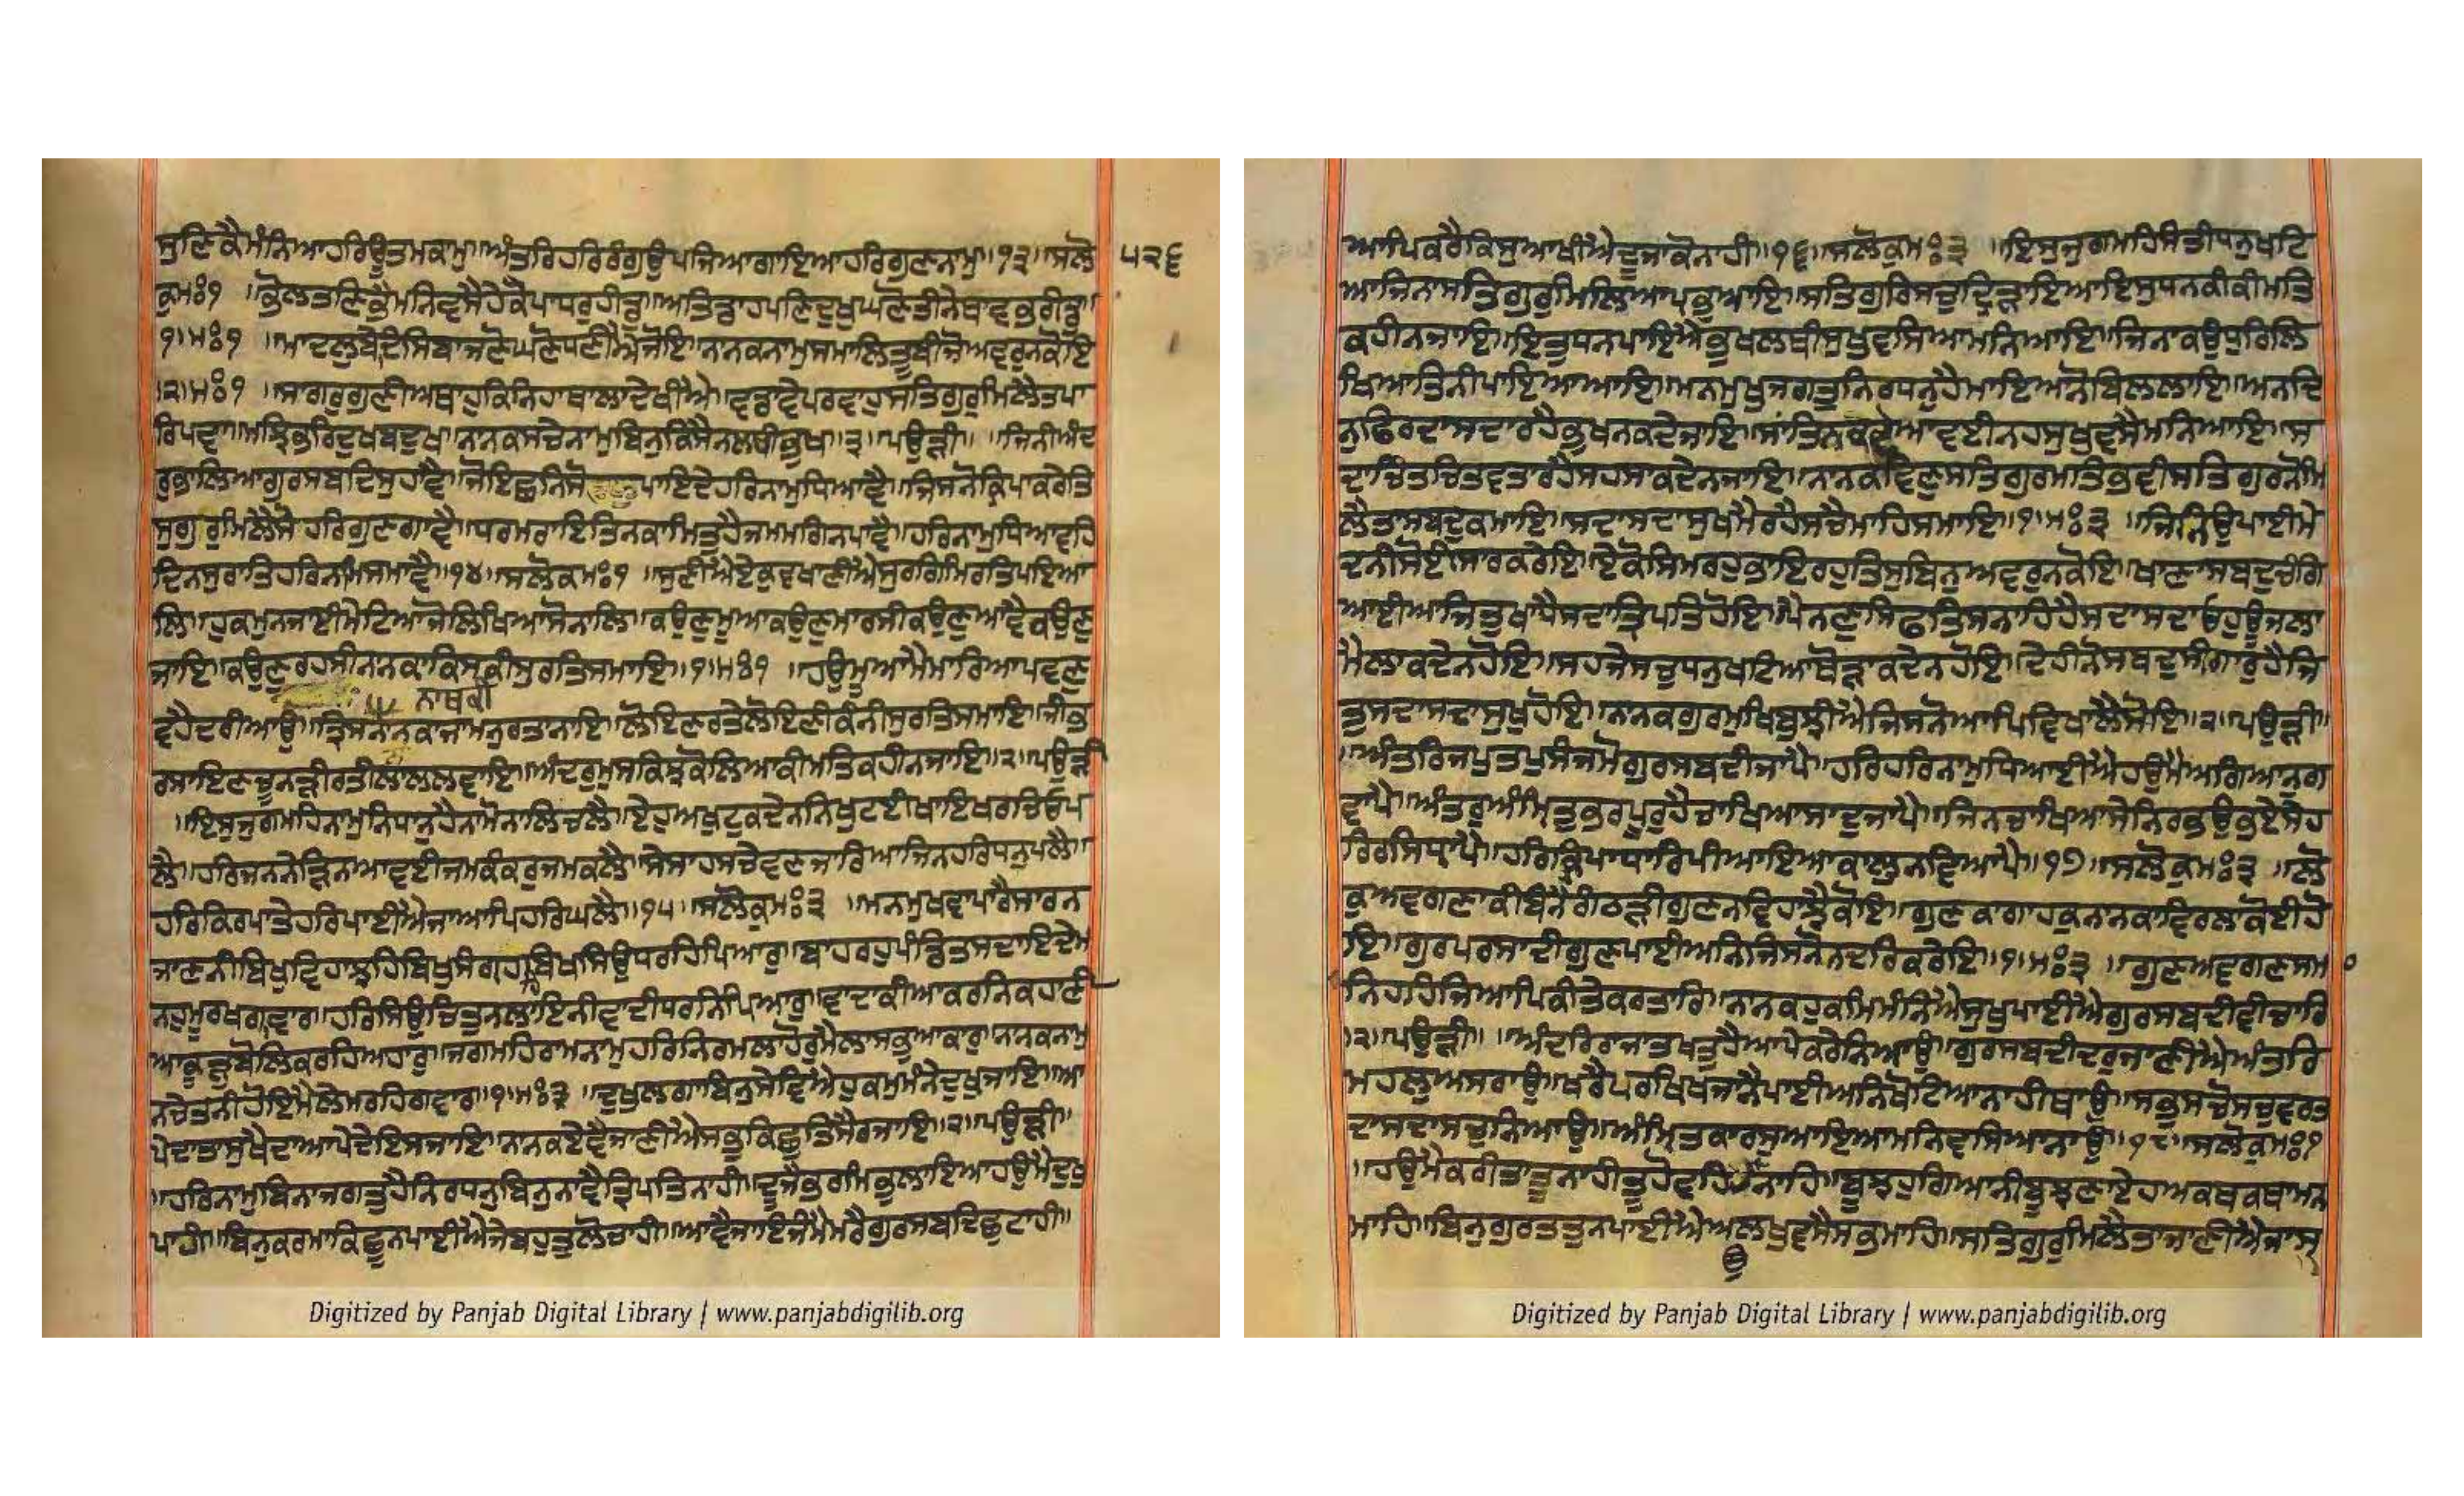 ਸੁਣਿਕੈਮੰਨਿਆਹਰਿਊਤਮਕਾਮੁ॥ਅੰਤਰਿਹਰਿਰੰਗੁਉਪਜਿਆਗਾਇਆਹਰਿਗੁਣਨਾਮੁ॥੧੩॥ਸਲੋ
੫੨੬
ਕੁਮਃ੧
੧॥ਮਃ੧
੨॥ਮਃ੧
ਰਿਪਦਾ॥ਮਝਿਕਰਿਦੁਖਬਦੁਖਾ ਨਾਨਕਸਚੇਨਾਮੁਬਿਨੁਕਿਸੈਨਲਥੀਭੁਖ॥੩॥ਪਉੜੀ॥ ਜਿਨੀਅੰਦ
ਪਾਇਦੇਹਰਿਨਾਮੁਧਿਆਵੈ॥ਜਿਸਨੋਕ੍ਰਿਪਾਕਰੇਤਿ
ਸੁਗੁਰੁਮਿਲੈਸੋਹਰਿਗੁਣਗਾਵੈ॥ਧਰਮਰਾਇਤਿਨਕਾਮਿਤੁਹੈਜਮਮਗਿਨਪਾਵੈ॥ਹਰਿਨਾਮੁਧਿਆਵਹਿ
ਦਿਨਸੁਰਾਤਿਹਰਿਨਾਮਿਸਮਾਵੈ॥੧੪॥ਸਲੋਕਮਃ੧ ॥ਸੁਣੀਐਏਕੁਵਖਾਣੀਐਸੁਰਗਿਮਿਰਤਿਪਇਆ
ਲਿ॥ਹੁਕਮੁਨਜਾਈਮੇਟਿਆਜੋਲਿਖਿਆਸੋਨਾਲਿ॥ਕਉਣੁਮੂਆਕਉਣੁਮਾਰਸੀਕਉਣੁਆਵੈਕਉਣੁ
ਜਾਇ॥ਕਉਣੁਰਹਸੀਨਾਨਕਾਕਿਸਕੀਸੁਰਤਿਸਮਾਇ॥੧॥ਮਃ੧ ॥ਹਉਮੁਆਮੈਮਾਰਿਆਪਵਣੁ
ਨਾਥਕੀ
ਵਹੈਦਰੀਆਉ॥
ਰਸਾਇਣਚੂਨੜੀਰਤੀਲਾਲਲਵਾਇ॥ਅੰਦਰੁਮੁਸਕਿਝਕੋਲਿਆਕੀਮਤਿਕਹੀਨਜਾਇ॥੨॥ਪਉੜੀ
॥ਇਸੁਜੁਗਮਹਿਨਾਮੁਨਿਧਾਨੁਹੈਨਾਮੋਨਾਲਿਚਲੈ॥ਏਹੁਅਖੁਟੁਕਦੇਨਨਿਖੁਟਈਖਾਇਖਰਚਿਉਪ
ਲੈ॥ਹਰਿਜਨਨੇੜਿਨਆਵਈਜਮਕੰਕਰਜਮਕਲੈ॥ਸੇਸਾਹਸਚੇਵਣਜਾਰਿਆਜਿਨਹਰਿਧਨੁਪਲੈ॥
ਹਰਿਕਿਰਪਾਤੇਹਰਿਪਾਈਐਜਾਆਪਿਹਰਿਘਲੈ॥੧੫॥ਸਲੋਕੁਮਃ੩ ॥ਮਨਮੁਖਵਾਪਾਰੈਸਾਰਨ
ਜਾਣਨੀਬਿਖੁਵਿਹਾਝਹਿਬਿਖੁਸੰਗ੍ਰਹਹਿਬਿਖਸਿਉਧਰਹਿਪਿਆਰੁ॥ਬਾਹਰਹੁਪੰਡਿਤਸਦਾਇਦੇਮ
ਨਹੁਮੂਰਖਗਾਵਾਰ॥ਹਰਿਸਿਉਚਿਤੁਨਲਾਇਨੀਵਾਦੀਧਰਨਿਪਿਆਰੁ॥ਵਾਦਾਕੀਆਕਰਨਿਕਹਾਣੀ
ਆਕੂੜੁਬੋਲਿਕਰਹਿਅਹਾਰੁ॥ਜਗਮਹਿਰਾਮਨਾਮੁਹਰਿਨਿਰਮਲਾਹੋਰੁਮੈਲਾਸਭੁਆਕਾਰੁ॥ਨਾਨਕਨਾਮੁ
ਨਚੇਤਨੀਹੋਇਮੈਲੇਮਰਹਿਗਵਾਰ॥੧॥ਮਃ੩ ॥ਦੁਖੁਲਗਾਬਿਨੁਸੇਵਿਐਹੁਕਮੁਮੰਨੇਦੁਖੁਜਾਇ॥ਆ
ਪੇਦਾਤਾਸੁਖੈਦਾਆਪੇਦੇਇਸਜਾਇ॥ਨਾਨਕਏਵੈਜਾਣੀਐਸਭੁਕਿਛੁਤਿਸੈਰਜਾਇ॥੨॥ਪਉੜੀ॥
॥ਹਰਿਨਾਮੁਬਿਨਾਜਗਤੁਹੈਨਿਰਧਨੁਬਿਨੁਨਾਵੈਤ੍ਰਿਪਤਿਨਾਹੀ॥ਦੂਜੈਭਰਮਿਭੁਲਾਇਆਹਉਮੈਦੁਖੁ
ਪਾਹੀ॥ਬਿਨੁਕਰਮਾਕਿਛੂਨਪਾਈਐਜੇਬਹੁਤੁਲੋਚਾਹੀ॥ਆਵੈਜਾਇਜੰਮੈਮਰੈਗੁਰਸਬਦਿਛੁਟਾਹੀ॥
ਆਪਿਕਰੈਕਿਸੁਆਖੀਐਦੂਜਾਕੋਨਾਹੀ॥੧੬॥ਸਲੋਕੁਮਃ੩ ॥ਇਸੁਜੁਗਮਹਿਸੰਤੀਧਨੁਖਟਿ
ਆਜਿਨਾਸਤਿਗੁਰੁਮਿਲਿਆਪ੍ਰਭੁਆਇ॥ਸਤਿਗੁਰਿਸਚੁਦ੍ਰਿੜਾਇਆਇਸੁਧਨਕੀਕੀਮਤਿ
ਕਹੀਨਜਾਇ॥ਇਤੁਧਨਪਾਇਐਭੁਖਲਥੀਸੁਖੁਵਸਿਆਮਨਿਆਇ॥ਜਿਨਾਕਉਧੁਰਿਲਿ
ਖਿਆਤਿਨੀਪਾਇਆਆਇ॥ਮਨਮੁਖੁਜਗਤੁਨਿਰਧਨੁਹੈਮਾਇਆਨੋਬਿਲਲਾਇ॥ਅਨਦਿ
ਨੁਫਿਰਦਾਸਦਾਰਹੈਭੁਖਨਕਦੇਜਾਇ॥ਸਾਂਤਿਨਕਦੇਆਵਈਨਹਸੁਖੁਵਸੈਮਨਿਆਇ॥ਸ
ਦਾਚਿੰਤਚਿਤਵਤਾਰਹੈਸਹਸਾਕਦੇਨਜਾਇ॥ਨਾਨਕਵਿਣੁਸਤਿਗੁਰਮਤਿਭਵੀਸਤਿਗੁਰਨੋਮਿ
ਲੈਤਾਸਬਦੁਕਮਾਇ॥ਸਦਾਸਦਾਸੁਖਮੈਰਹੈਸਚੈਮਾਹਿਸਮਾਇ॥੧॥ਮਃ੩ ॥ਜਿਨਿਉਪਾਈਮੇ
ਦਨੀਸੋਈਸਾਰਕਰੇਇ॥ਏਕੋਸਿਮਰਹੁਭਾਇਰਹੁਤਿਸੁਬਿਨੁਅਵਰੁਨਕੋਇ॥ਖਾਣਾਸਬਦੁਚੰਗਿ
ਆਈਆਜਿਤੁਖਾਧੈਸਦਾਤ੍ਰਿਪਤਿਹੋਇ॥ਪੈਨਣੁਸਿਫਤਿਸਨਾਹਿਹੈਸਦਾਸਦਾਓਹੁਊਜਲਾ
ਮੈਲਾਕਦੇਨਹੋਇ॥ਸਹਜੇਸਚੁਧਨੁਖਟਿਆਥੋੜਾਕਦੇਨਹੋਇ॥ਦੇਹੀਨੋਸਬਦੁਸੀਗਾਰੁਹੈਜਿ
ਤੁਸਦਾਸਦਾਸੁਖੁਹੋਇ॥ਨਾਨਕਗੁਰਮੁਖਿਬੁਝੀਐਜਿਸਨੋਆਪਿਵਿਖਾਲੈਸੋਇ॥੨॥ਪਉੜੀ॥
॥ਅੰਤਰਿਜਪੁਤਪੁਸੰਜਮੋਗੁਰਸਬਦੀਜਾਪੈ॥ਹਰਿਹਰਿਨਾਮੁਧਿਆਈਐਹਉਮੈਅਗਿਆਨੁਗ
ਵਾਪੈ॥ਅੰਤਰੁਅੰਮ੍ਰਿਤੁਭਰਪੂਰੁਹੈਚਾਖਿਆਸਾਦੁਜਾਪੈ॥ਜਿਨਚਾਖਿਆਸੇਨਿਰਭਉਭਏਸੇਹ
ਰਿਰਸਿਧ੍ਰਾਪੈ॥ਹਰਿਕ੍ਰਿਪਾਧਾਰਿਪੀਆਇਆਕਾਲੁਨਵਿਆਪੈ॥੧੭॥ਸਲੋਕੁਮਃ੩ ॥ਲੋ
ਕੁਅਵਗਣਾਕੀਬੰਨੈਗੰਠੜੀਗੁਣਨਵਿਹਾਝੈਕੋਇ॥ਗੁਣਕਾਗਾਹਕੁਨਾਨਕਾਵਿਰਲਾਕੋਈਹੋ
ਇ॥ਗੁਰਪਰਸਾਦੀਗੁਣਪਾਈਅਨਿਜਿਸਨੋਨਦਰਿਕਰੇਇ॥੧॥ਮਃ੩ ॥ਗੁਣਅਵਗਣਸਮਾ
ਨਿਹਹਿਜਿਆਪਿਕੀਤੇਕਰਤਾਰਿ॥ਨਾਨਕਹੁਕਮਿਮੰਨਿਐਸੁਖੁਪਾਈਐਗੁਰਸਬਦੀਵੀਚਾਰਿ
॥੨॥ਪਉੜੀ॥ ॥ਅੰਦਰਿਰਾਜਾਤਖਤੁਹੈਆਪੇਕਰੇਨਿਆਉ॥ਗੁਰਸਬਦੀਦਰੁਜਾਣੀਐਅੰਤਰਿ
ਮਹਲੁਅਸਰਾਉ॥ਖਰੈਪਰਖਿਖਜਾਨੈਪਾਈਅਨਿਖੋਟਿਆਨਾਹੀਥਾਉ॥ਸਭੁਸਚੋਸਚੁਵਰਤ
ਦਾਸਦਾਸਚੁਨਿਆਉ॥ਅੰਮ੍ਰਿਤਕਾਰਸੁਆਇਆਮਨਿਵਸਿਆਨਾਉ॥੧੮॥ਸਲੋਕੁਮਃ੧
॥ਹਉਮੈਕਰੀਤਾਤੂਨਾਹੀਤੂਹੋਵਹਿਹਉਨਾਹਿ॥ਬੂਝਹੁਗਿਆਨੀਬੂਝਣਾਏਹਅਕਥਕਥਾਮਨ
ਮਾਹਿ॥ਬਿਨੁਗੁਰਤਤੁਨਪਾਈਐਅਲਖੁਵਸੈਸਭਮਾਹਿ॥ਸਤਿਗੁਰੁਮਿਲੈਤਾਜਾਣੀਐਜਾਸ
Digitized by Panjab Digital Library | www.panjabdigilib.org
Digitized by Panjab Digital Library | www.panjabdigilib.org